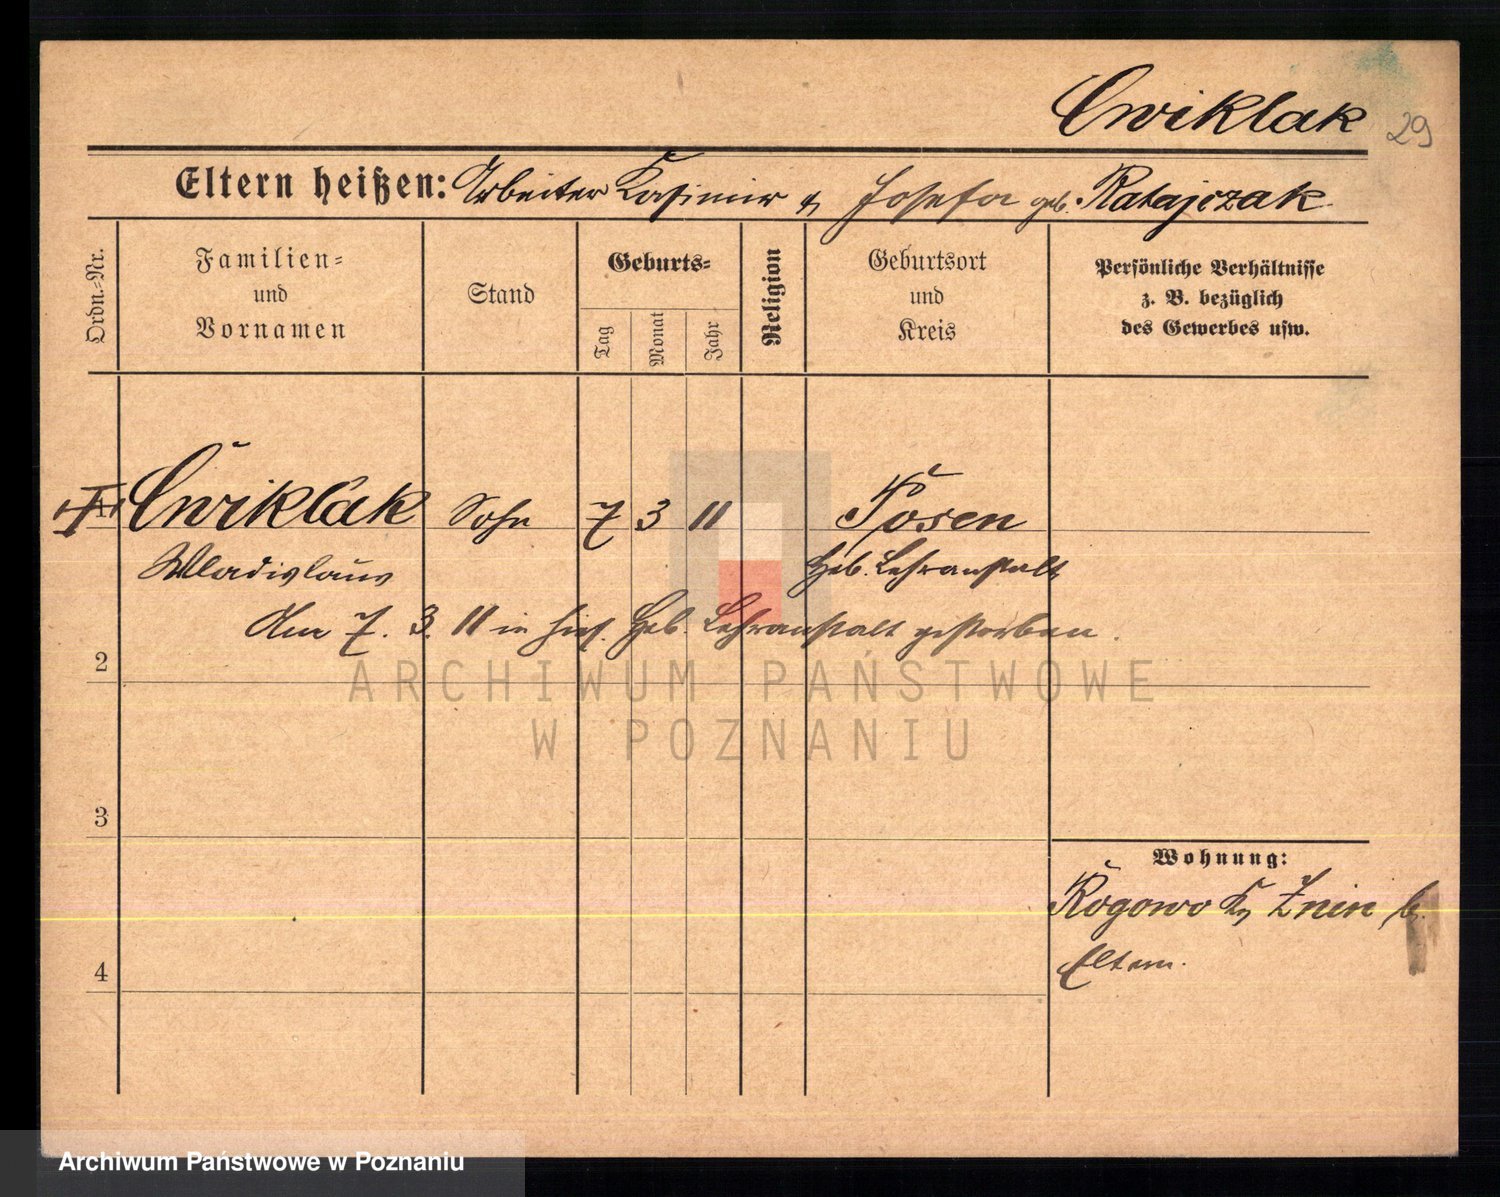 Cwiklak 29
Eltern heißen: Arbeiter Kasimir u Josefa geb. Ratajczak
Ordn.-Nr.
Familien-
und
Vornamen
Stand
Geburts-
Tag
Monat
Jahr
Religion
Geburtsort
und
Kreis
Persönliche Verhältnisse
z. B. bezüglich
des Gewerbes usw.
Cwiklak Sohn 7 3 11 Posen
Wladislaus Heb. Lehranstalt
Am 7. 3. 11 in hies. Heb. Lehranstalt gestorben.
2
ARCHIWUM PAŃSTWOWE
W POZNANIU
3
Wohnung:
Rogowo Kr Znin b.
Eltern.
4
Archiwum Państwowe w Poznaniu